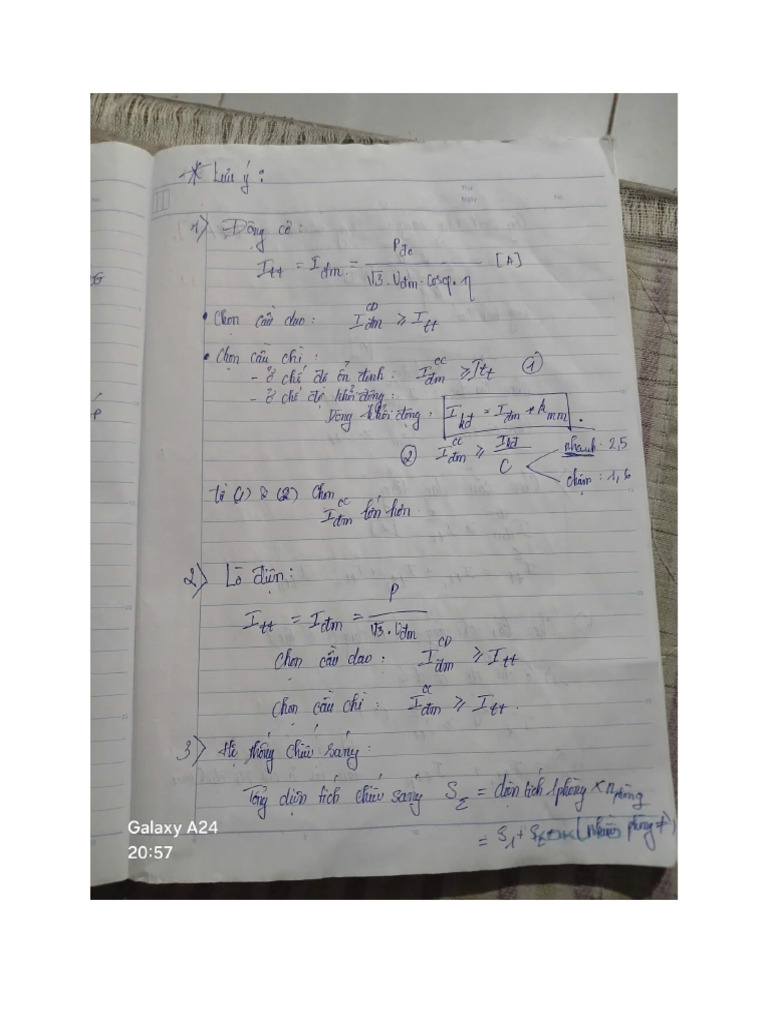 * Lưu ý:
1) Động cơ:
Itt = Iđm = Pđc / √3 . Uđm . cosφ . η [A]
• Chọn cầu dao: Iđm^CD ≥ Itt
• Chọn cầu chì:
- Ở chế độ ổn định: Iđm^CC ≥ Itt ①
- Ở chế độ khởi động:
Dòng khởi động: Ikđ = Iđm * kmm.
② Iđm^CC ≥ Ikđ / C
nhanh: 2,5
chậm: 1,6
Từ (1) & (2) chọn
Iđm^CC lớn hơn
2) Lò điện:
Itt = Iđm = P / √3 . Uđm
Chọn cầu dao: Iđm^CD ≥ Itt
Chọn cầu chì: Iđm^CC ≥ Itt.
3) Hệ thống chiếu sáng:
Tổng diện tích chiếu sáng SΣ = diện tích 1 phòng × nphòng
= S1 + S2 (nhiều phòng ≠)
Galaxy A24
20:57